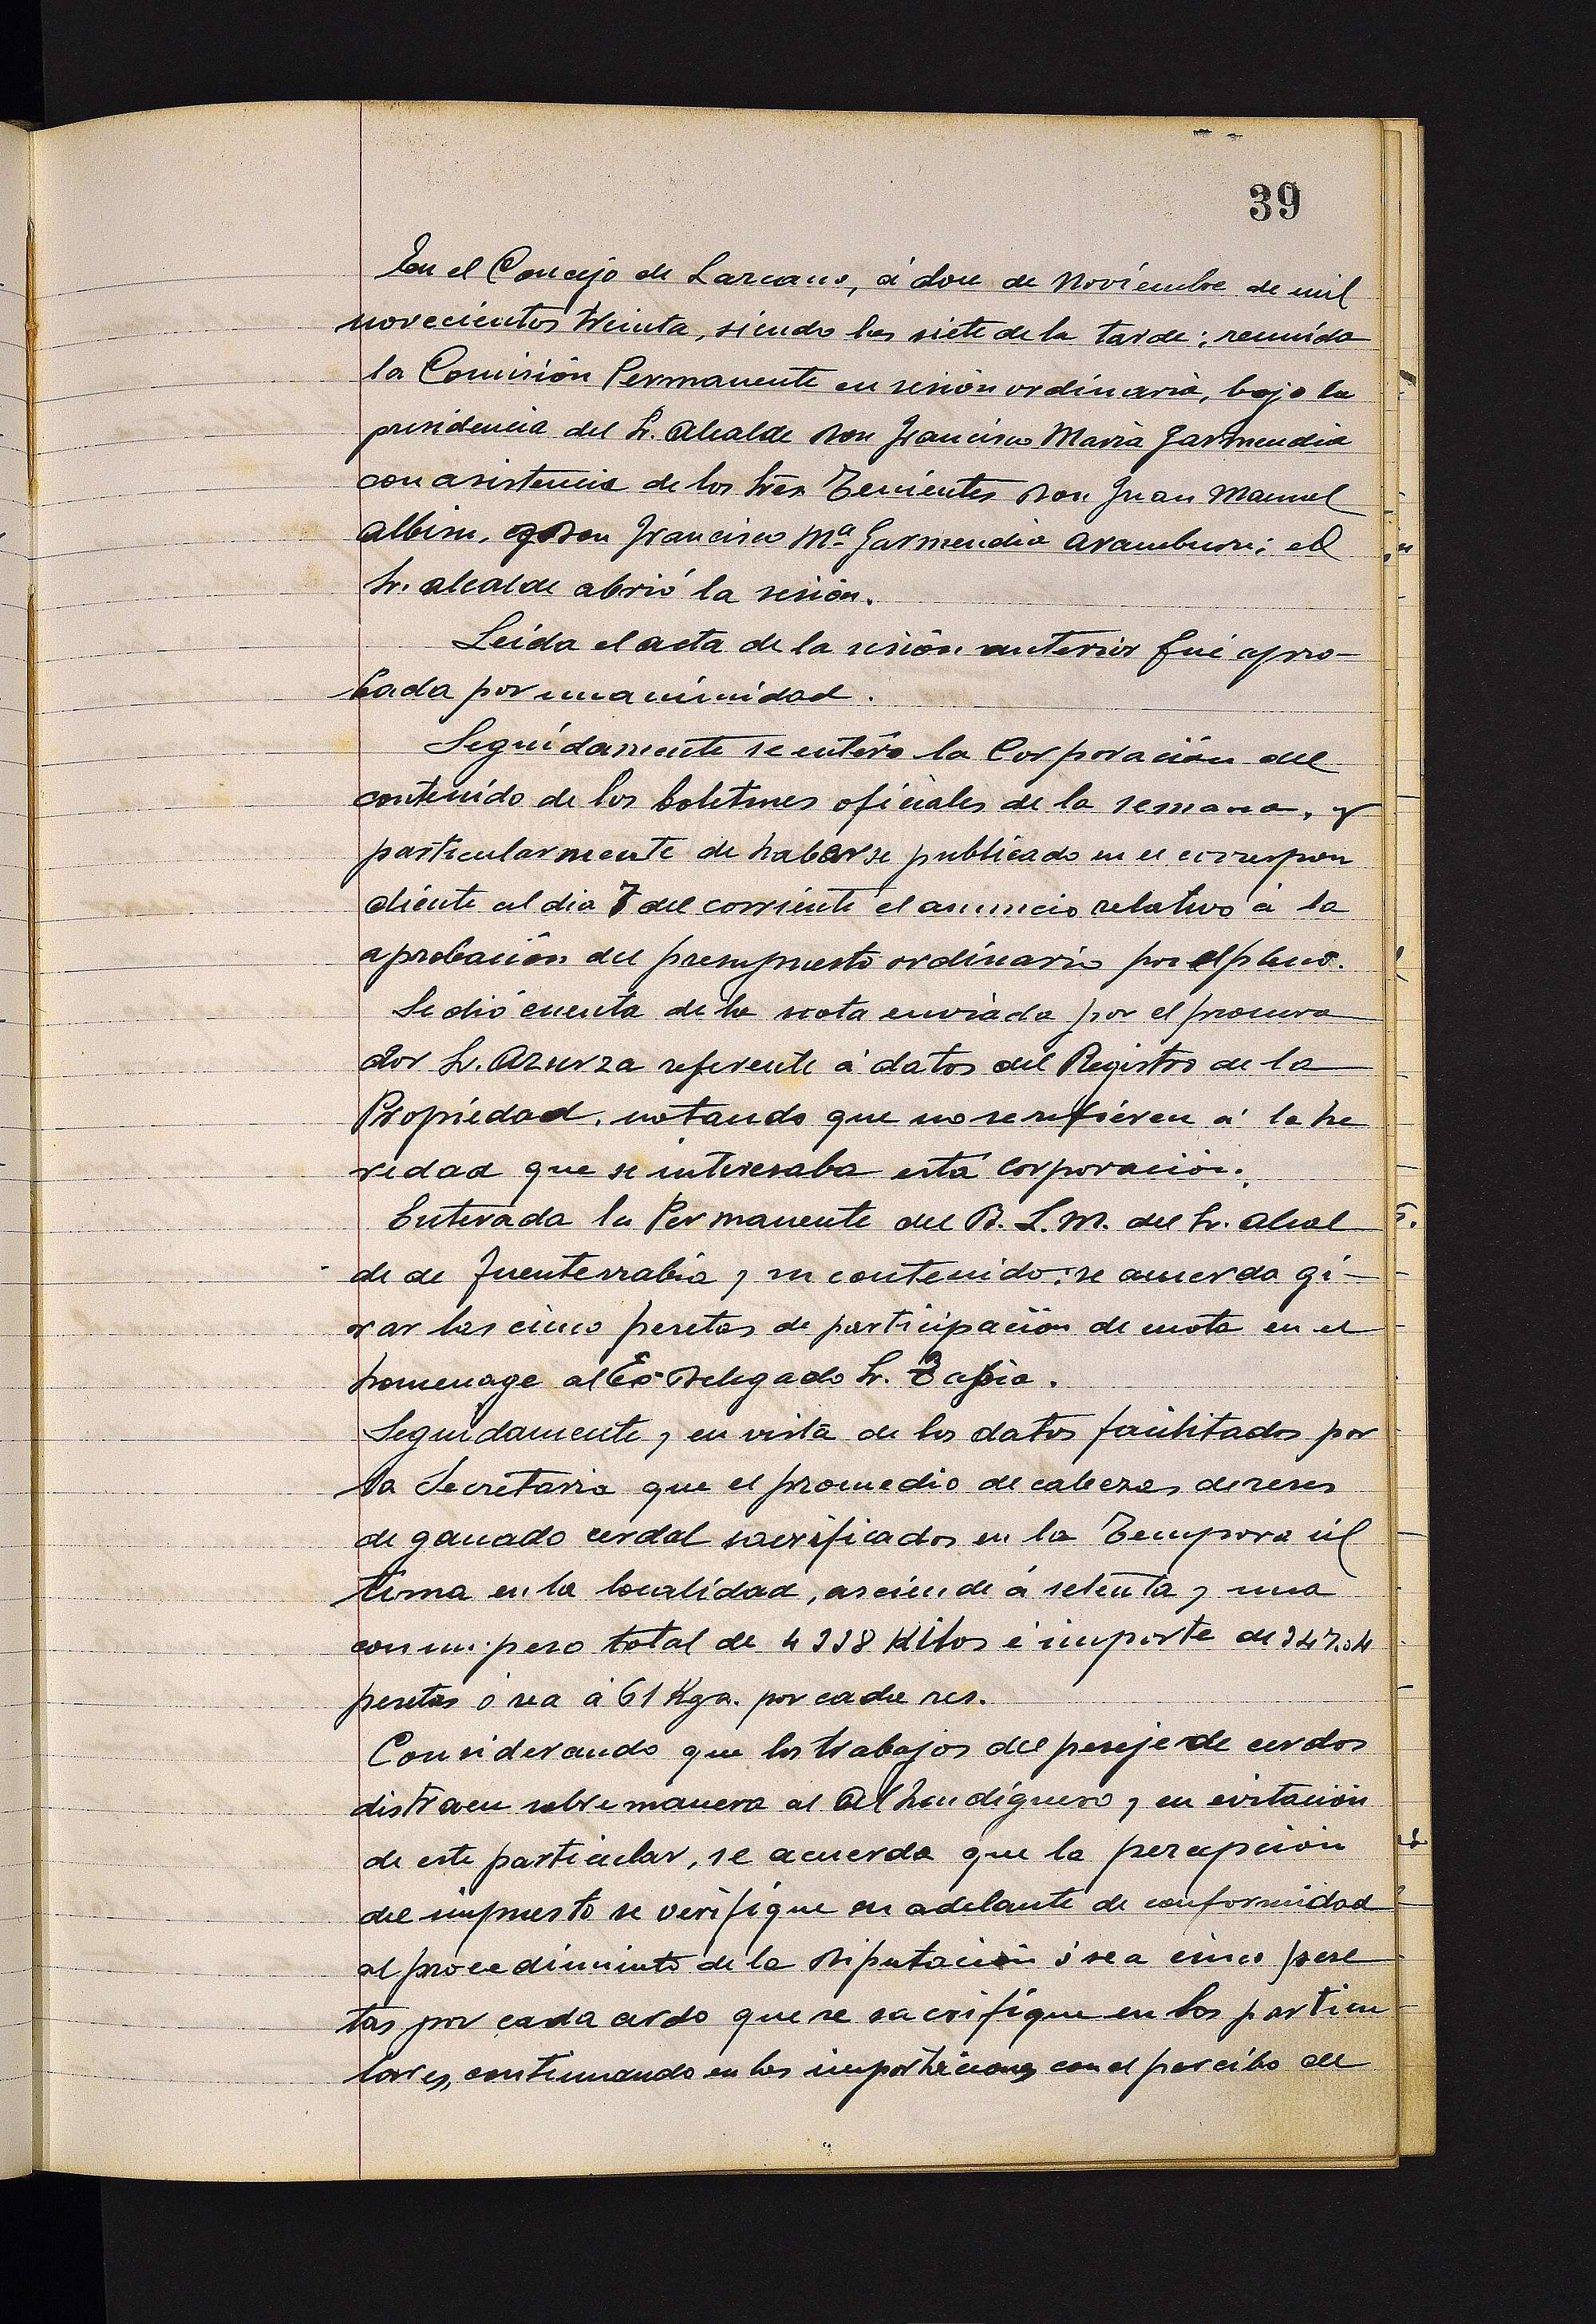 39
En el Concejo de Lazcano, á doce de Noviembre de mil
novecientos treinta, siendo las siete de la tarde; reunida
la Comisión Permanente en sesión ordinaria, bajo la
presidencia del Sr. Alcalde Don Francisco Maria Garmendia
con asistencia de los Sres. Tenientes Don Juan Manuel
Albisu, y Don Francisco Mª Garmendia Aramburu; el
Sr. Alcalde abrió la sesión.
Leida el acta de la sesión anterior fué apro-
bada por unanimidad.
Seguidamente se enteró la Corporación del
contenido de los boletines oficiales de la semana, y
particularmente de haberse publicado en el correspon
diente al dia 7 del corriente el anuncio relativo á la
aprobación del presupuesto ordinario por el pleno.
Se dió cuenta de la nota enviada por el procura
dor Sr. Azurza referente á datos del Registro de la
Propiedad, notando que no se refieren á la he
redad que se interesaba esta corporación.
Enterada la Permanente del B. L. M. del Sr. Alcal
de de Fuenterrabia y su contenido; se acuerda gi-
rar las cinco pesetas de participación de cuota en el
homenage al Ex-Delegado Sr. Tapia.
Seguidamente, en vista de los datos facilitados por
la Secretaria que el promedio de cabezas de reses
de ganado cerdal sacrificados en la Tempora úl
tima en la localidad, asciende á setenta y una
con un peso total de 4338 Kilos é importe de 347.04
pesetas ó sea á 61 Kgs. por cada res.
Considerando que los trabajos del peseje de cerdos
distraen sobremanera al Alhondiguero, en evitación
de este particular, se acuerda que la percepción
del impuesto se verifique en adelante de conformidad
al procedimiento de la Diputación ó sea cinco pese
tas por cada cerdo que se sacrifique en los particu
lares, continuando en las importaciones con el percibo del